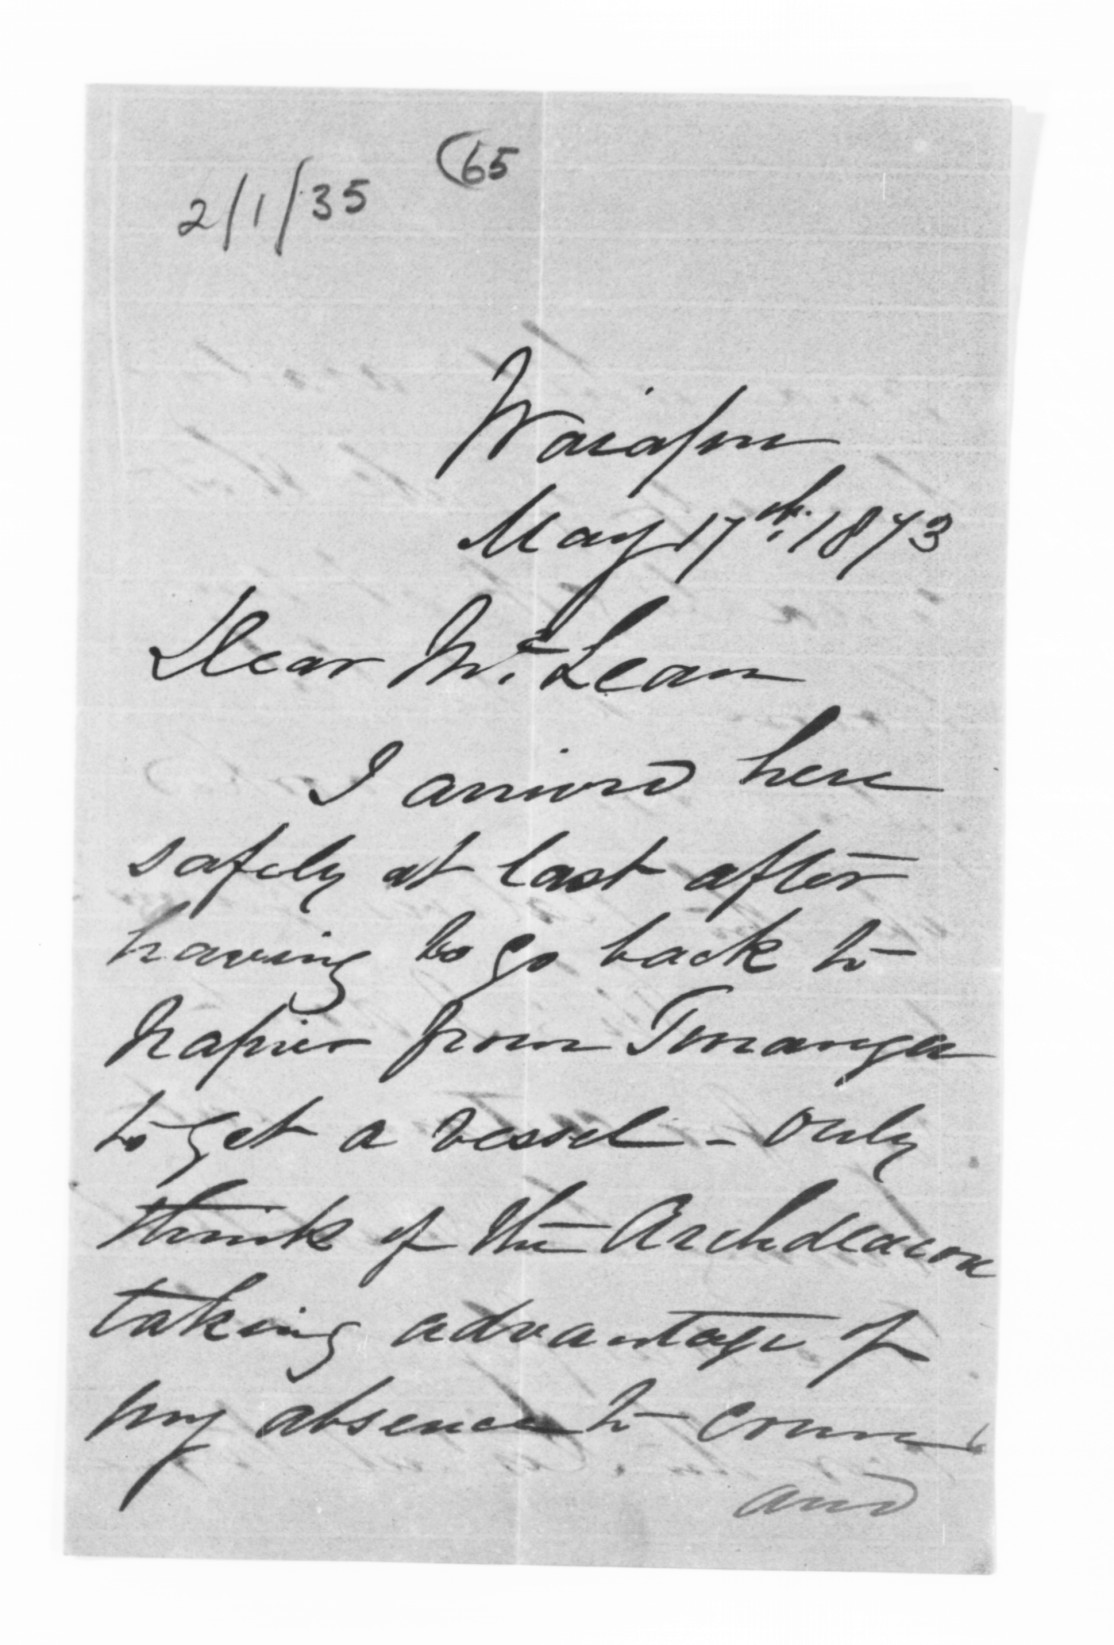 2/1/35 (65
Waiapu
May 17th. 1873
Dear Mc. Lean
I arrived here
safely at last after
having to go back to
Napier from Turanga
to get a vessel - only
think of the Archdeacon
taking advantage of
my absence to come
and